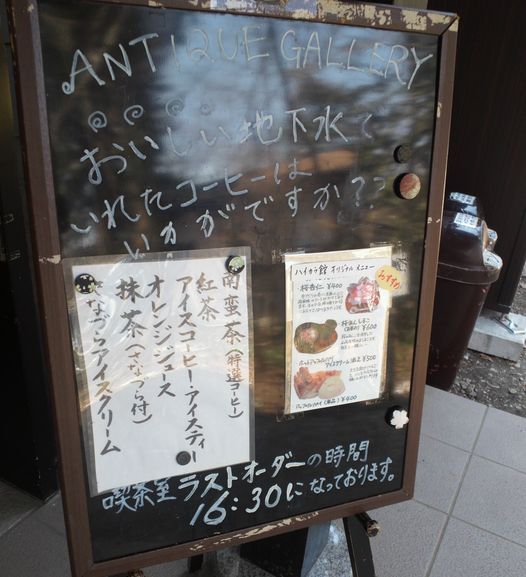 ANTIQUE GALLERY
おいしい地下水で
いれたコーヒーは
いかがですか??
南蛮茶(特選コーヒー)
紅茶
アイスコーヒー・アイスティー
オレンジジュース
抹茶(さなづら付)
さなづらアイスクリーム
ハイカラ館 オリジナル メニュー
おすすめ
桜杏仁 ¥400
¥600
アイスクリーム添え ¥500
(単品) ¥400
喫茶室 ラストオーダーの時間
16:30になっております。